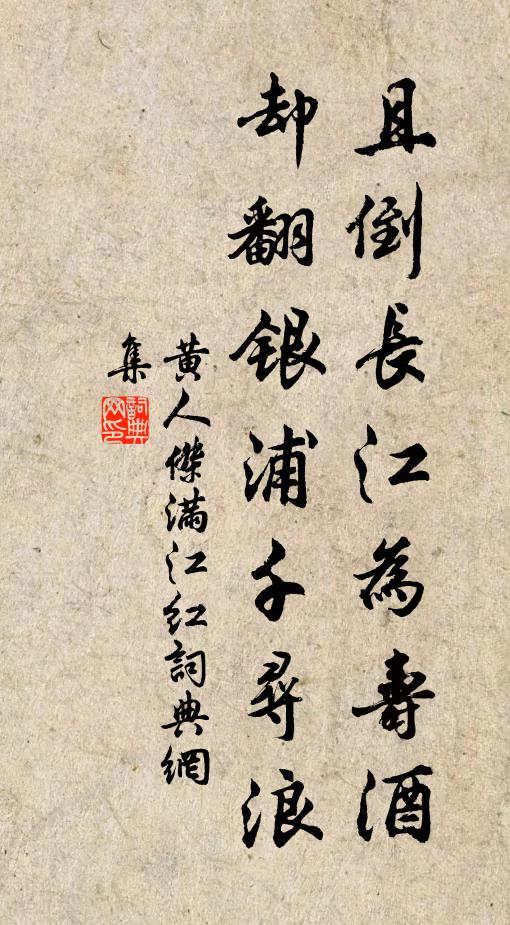 且倒長江為壽酒
却翻銀浦千尋浪
黄人傑滿江紅詞典網
集
詞典網印